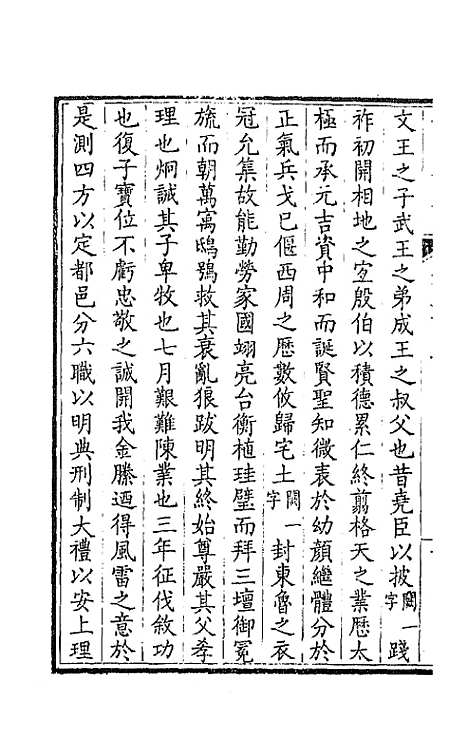 文王之子武王之弟成王之叔父也昔堯臣以披闕一字踐
祚初開相地之宜殷伯以積德累仁終翦格天之業歷太
極而承元吉資中和而誕賢聖知微表於幼顏繼體分於
正氣兵戈已偃西周之歷數攸歸宅土闕一字封東魯之衣
冠允集故能勤勞家國翊亮台衡植珪璧而拜三壇御冕
旒而朝萬㝢鴟鴞救其衰亂狼跋明其終始尊嚴其父孝
理也炯誡其子卑牧也七月艱難陳業也三年征伐敘功
也復子寶位不虧忠敬之誠開我金縢迺得風雷之意於
是測四方以定都邑分六職以明典刑制大禮以安上理